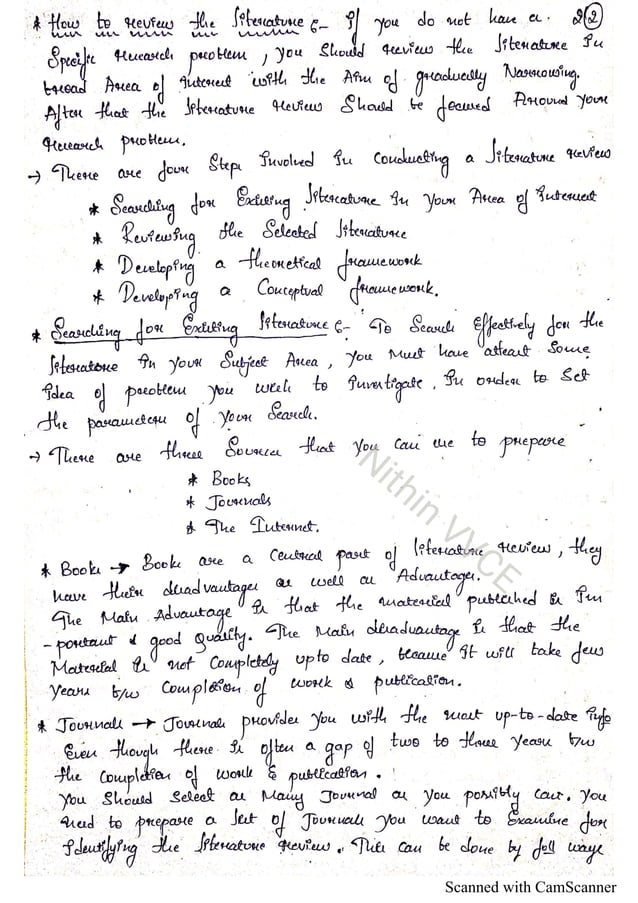 * How to review the literature :- If you do not have a 2(2)
Specific research problem, you should review the literature in
broad Area of interest with the Aim of gradually Narrowing.
After that the literature review should be focused Around your
research problem.
→ There are four Step involved in conducting a literature review
* Searching for Existing literature in your Area of interest
* Reviewing the Selected literature
* Developing a theoretical framework
* Developing a Conceptual framework.
* Searching for Existing literature :- To Search Effectively for the
literature in your Subject Area, you Must have atleast Some
idea of problem you wish to investigate, in order to Set
the parameters of your Search.
→ There are three Sources that you can use to prepare
* Books
* Journals
* The Internet.
* Books → Books are a Central part of literature review, they
have their disadvantages as well as Advantages.
The Main Advantage is that the material published is im
-portant & good quality. The Main disadvantage is that the
Material is not Completely upto date, because it will take few
years b/w Completion of work & publication.
* Journals → Journals provides you with the most up-to-date info
Even though there is often a gap of two to three years b/w
the completion of work & publication.
You Should Select as Many Journal as you possibly can. You
need to prepare a list of Journals you want to Examine for
Identifying the literature review. This can be done by foll ways
Nithin VVCE
Scanned with CamScanner